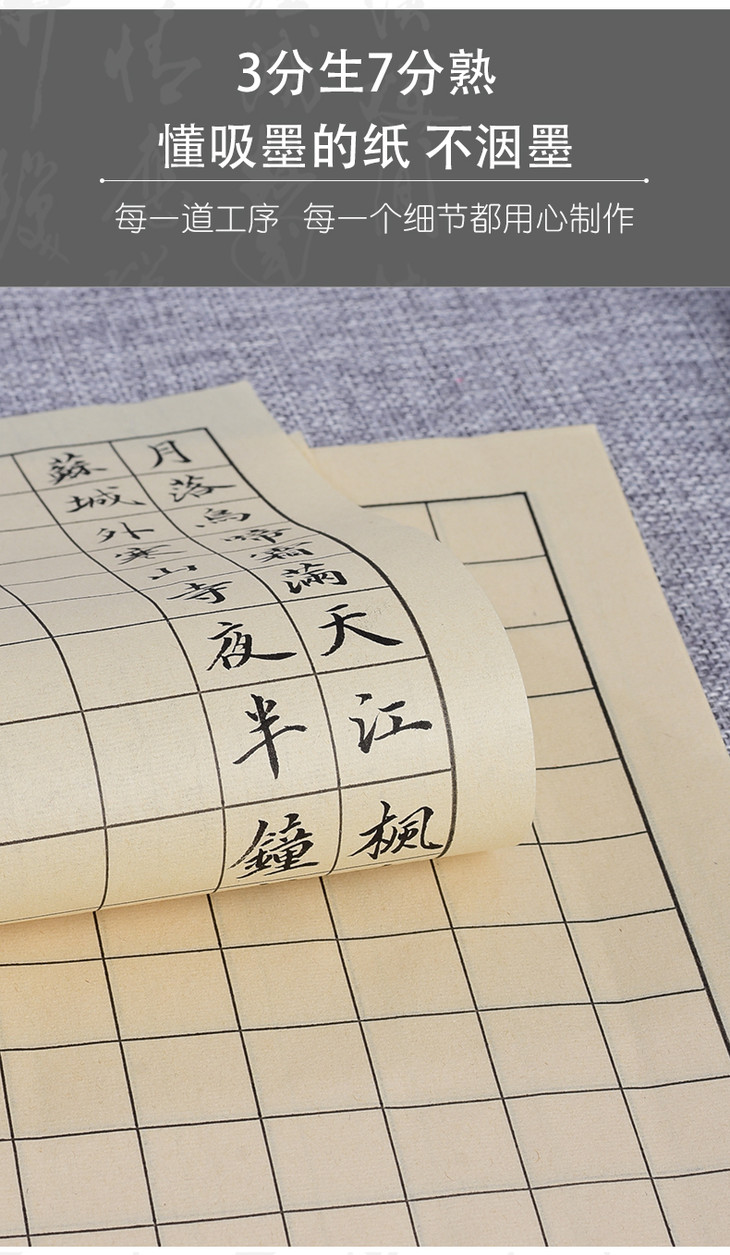 3分生7分熟
懂吸墨的纸 不洇墨
每一道工序 每一个细节都用心制作
月落烏啼霜滿天江楓
蘇城外寒山寺夜半鐘